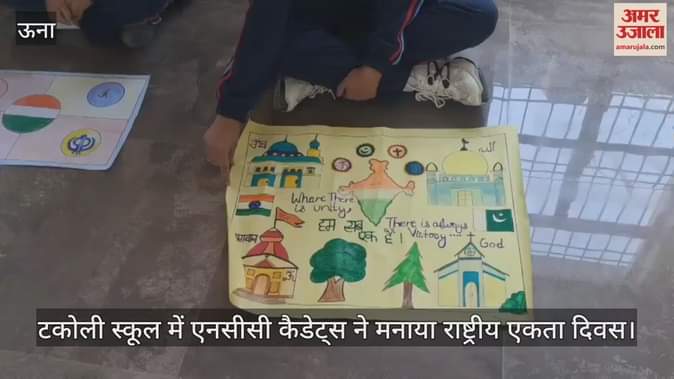 ऊना
अमर उजाला
amarujala.com
Where There
is unity,
हम सब
एक है।
There is always
Victory ....
God
ॐ
الله
टकोली स्कूल में एनसीसी कैडेट्स ने मनाया राष्ट्रीय एकता दिवस।